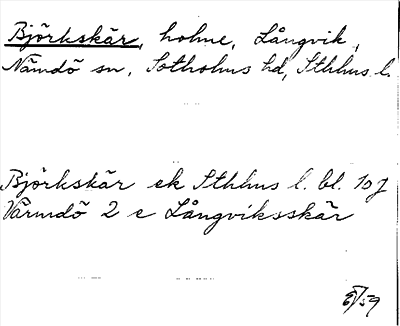 Björkskär, holme, Långvik,
Nämdö sn, Sotholms hd, Sthlms l.
Björkskär ek Sthlms l. bl. 10 J
Värmdö 2 e Långviksskär
/59